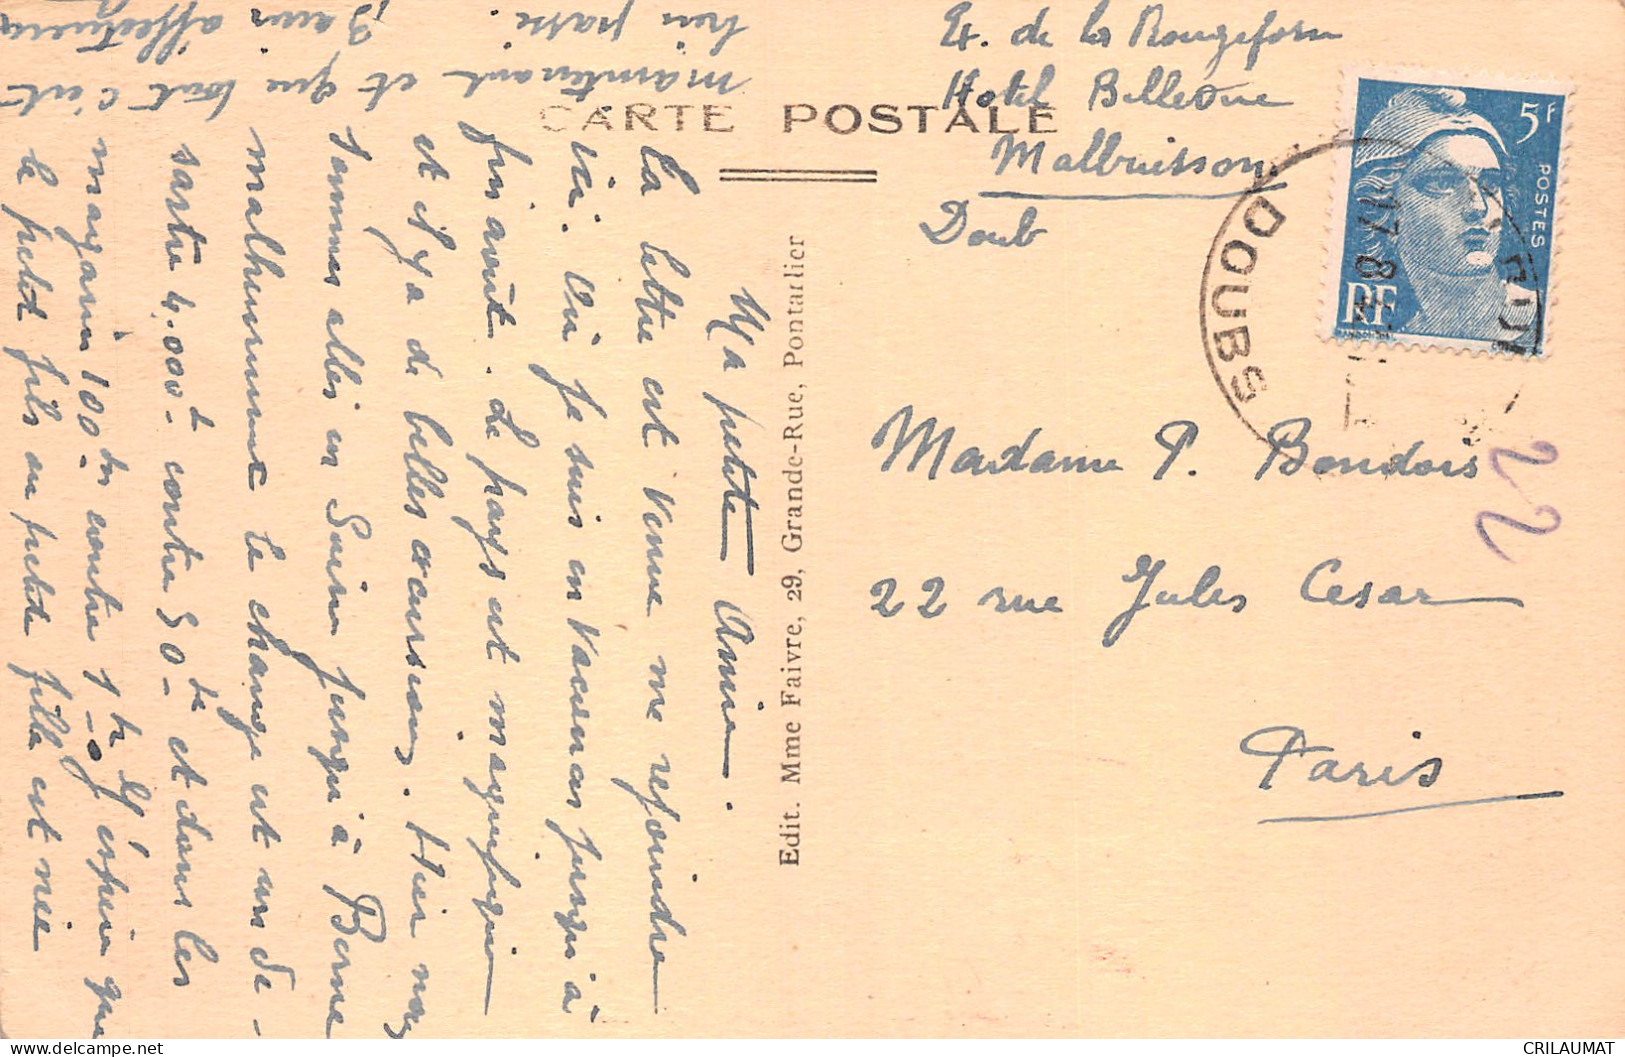 Et. de la Rougeforn
Hotel Bellevue
Malbuisson
Doub
CARTE POSTALE
Edit. Mme Faivre, 29, Grande-Rue, Pontarlier
5F
POSTES
RF
DOUBS
17 8
22
Madame P. Bondois
22 rue Jules Cesar
Paris
Ma petite Amie.
la lettre est venue me rejoindre
ici. Oui je suis en vacances jusqu'à
fin août. Le pays est magnifique
et il y a de belles excursions. Hier nous
sommes allés en Suisse jusqu'à Berne
malheureusement le change est un dé-
sastre 4.000 contre 50 frs et dans les
magasins 100 frs contre 1 fr. J'espère que
le petit fils ou petite fille est née
maintenant et que tout c'est
bien passé.
Bons affectueux
CRILAUMAT